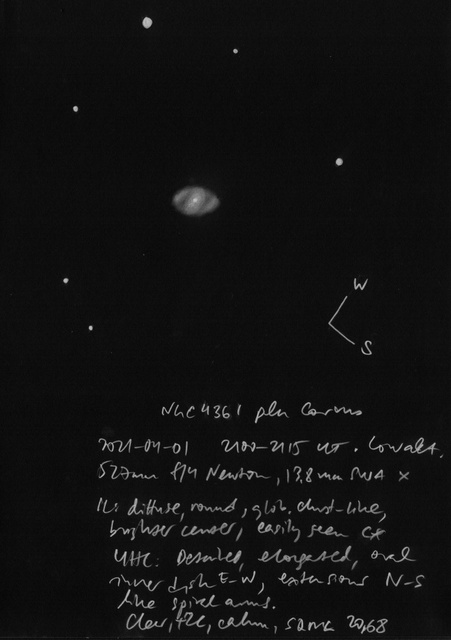 W
S
NGC 4361 pln Corvus
2021-04-01 2100-2115 UT. Low alt.
527mm f/4 Newton, 13,8mm SWA x
IL: diffuse, round, glob. clust-like,
brighter center, easily seen C*
UHC: Detailed, elongated, oval
inner dish E-W, extensions N-S
like spiral arms.
Clear, +2C, calm, SQML 20,68